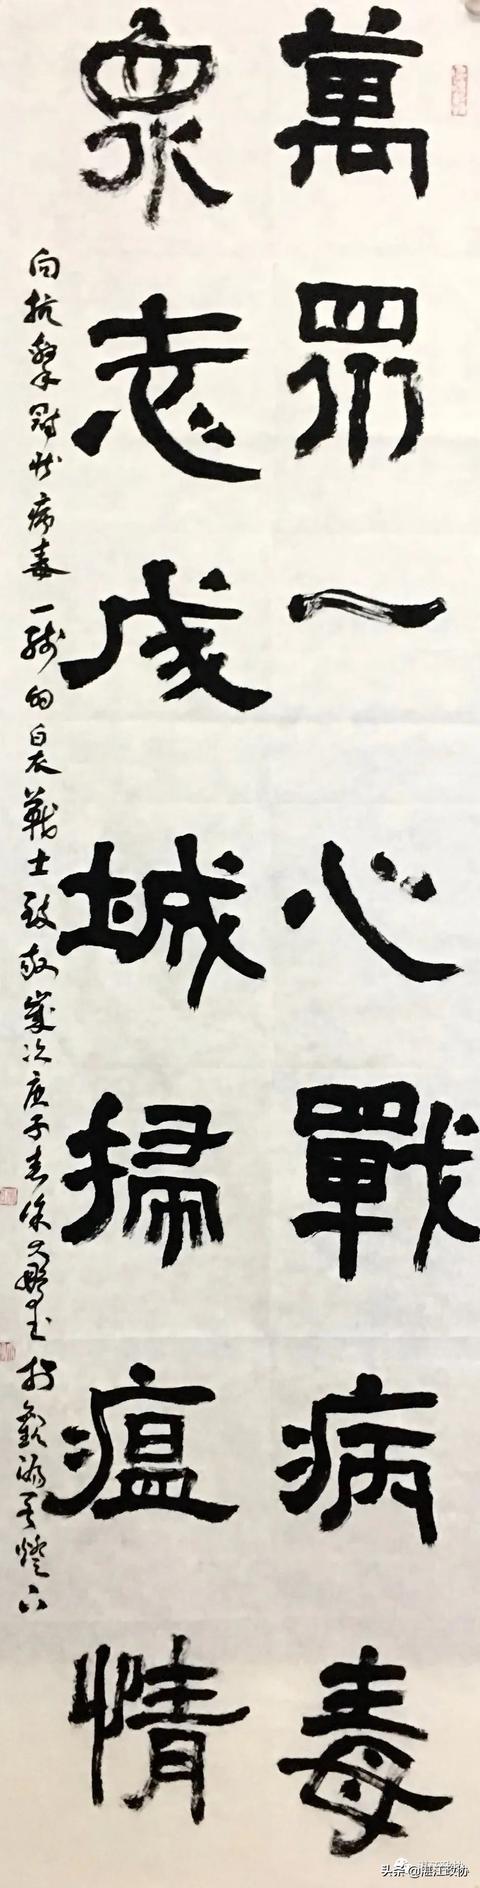 萬眾一心戰病毒
眾志成城掃瘟情
向抗擊冠狀病毒一線的白衣戰士致敬歲次庚子春徐文 書於觀海 燈下
湛江政协
头条@湛江政协